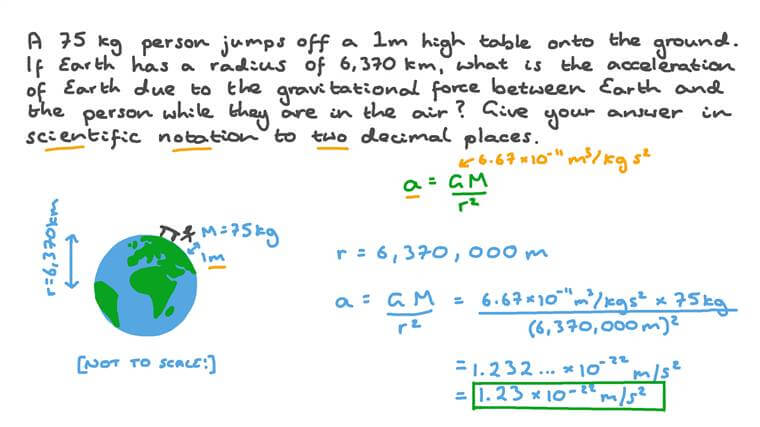 A 75 kg person jumps off a 1m high table onto the ground.
If Earth has a radius of 6,370 km, what is the acceleration
of Earth due to the gravitational force between Earth and
the person while they are in the air? Give your answer in
scientific notation to two decimal places.
6.67×10⁻¹¹ m³/kg s²
a = GM/r²
r=6,370km
M=75kg
1m
[NOT TO SCALE!]
r = 6,370,000 m
a = GM/r² = 6.67×10⁻¹¹ m³/kgs² × 75kg/(6,370,000 m)²
= 1.232... ×10⁻²² m/s²
= 1.23 ×10⁻²² m/s²